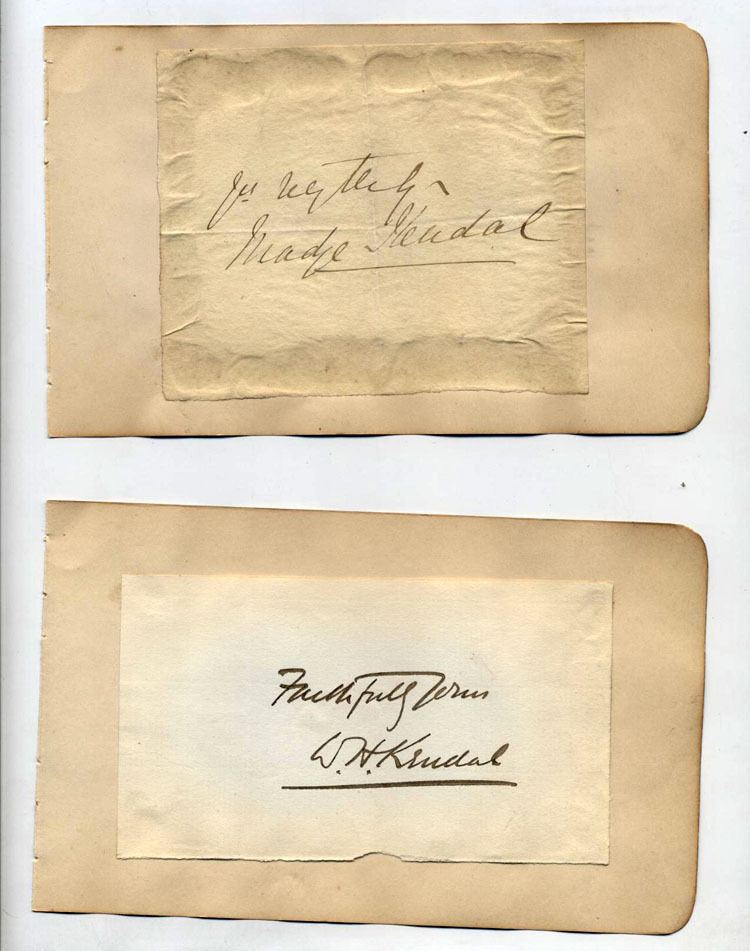 Yrs very truly
Madge Kendal
Faithfully Yours
W. H. Kendal